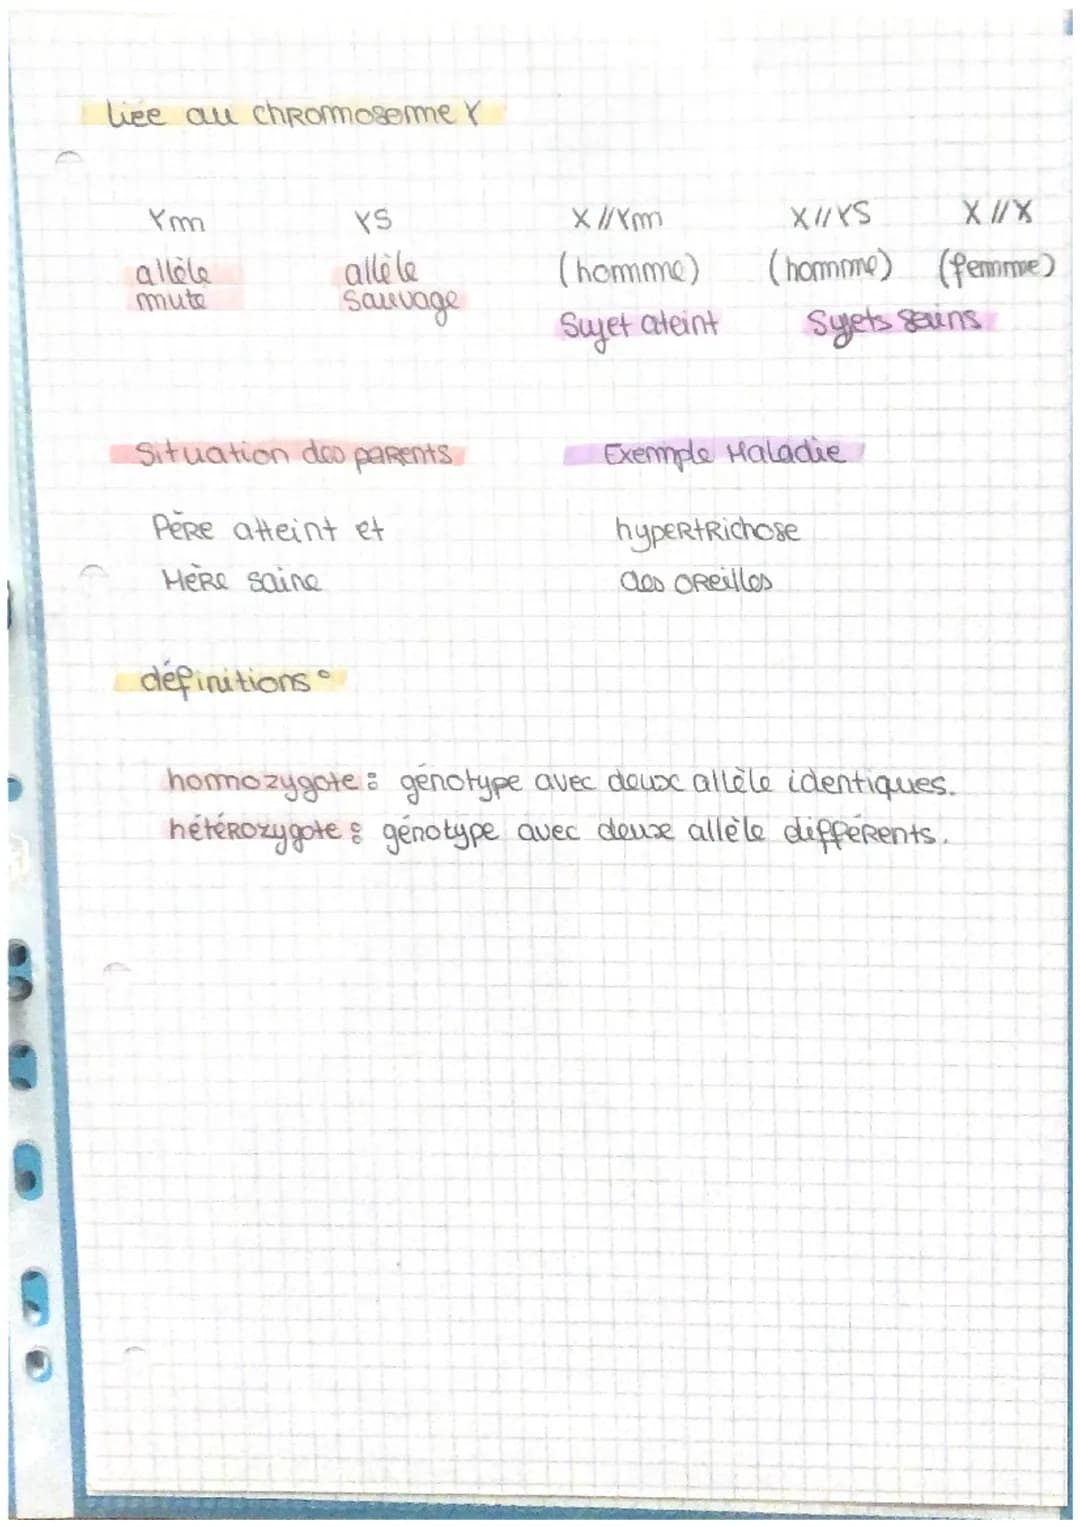 liée au chromosome Y
Ym YS X//Ym X//YS X//X
allèle allèle (homme) (homme) (femme)
mute sauvage Sujet ateint Sujets sains
Situation des parents Exemple Maladie
Père atteint et hypertrichose
Mère saine des oreilles
définitions :
homozygote : génotype avec deux allèle identiques.
hétérozygote : génotype avec deux allèle différents.